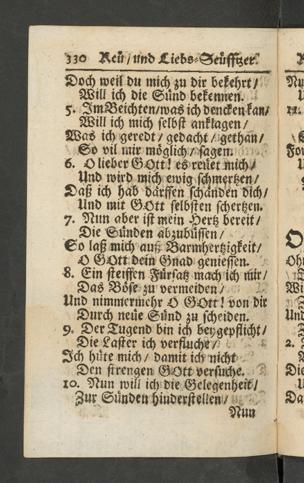 330 Reü/ und Liebs-Seüfftzer.
Doch weil du mich zu dir bekehrt/
Will ich die Sünd bekennen.
5. Im Beichten/was ich dencken kan/
Will ich mich selbst anklagen/
Was ich geredt/ gedacht/ gethan/
So vil mir möglich/ sagen.
6. O lieber GOtt! es reuet mich/
Und wird mich ewig schmertzen/
Daß ich hab därffen schänden dich/
Und mit GOtt selbsten schertzen.
7. Nun aber ist mein Hertz bereit/
Die Sünden abzubüssen/
So laß mich auß Barmhertzigkeit/
O GOtt dein Gnad geniessen.
8. Ein steiffen Fürsatz mach ich mir/
Das Böse zu vermeiden/
Und nimmermehr O GOtt! von dir
Durch neüe Sünd zu scheiden.
9. Der Tugend bin ich beygepflicht/
Die Laster ich verfluche/
Ich hüte mich/ damit ich nicht
Den strengen GOtt versuche.
10. Nun will ich die Gelegenheit/
Zur Sünden hinderstellen/
Nun